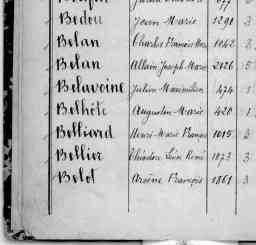 Bedou Jean Marie 1291 3
Belan Charles François Marie 1042 3
Belan Allain Joseph Marie 2126 5
Belavoine Julien Maximilien 474 1
Belhête Augustin Marie 428 1
Belliard Henri Marie François 1015 3
Bellier Théodore Léon René 1873 3
Belot Arsène François 1861 3